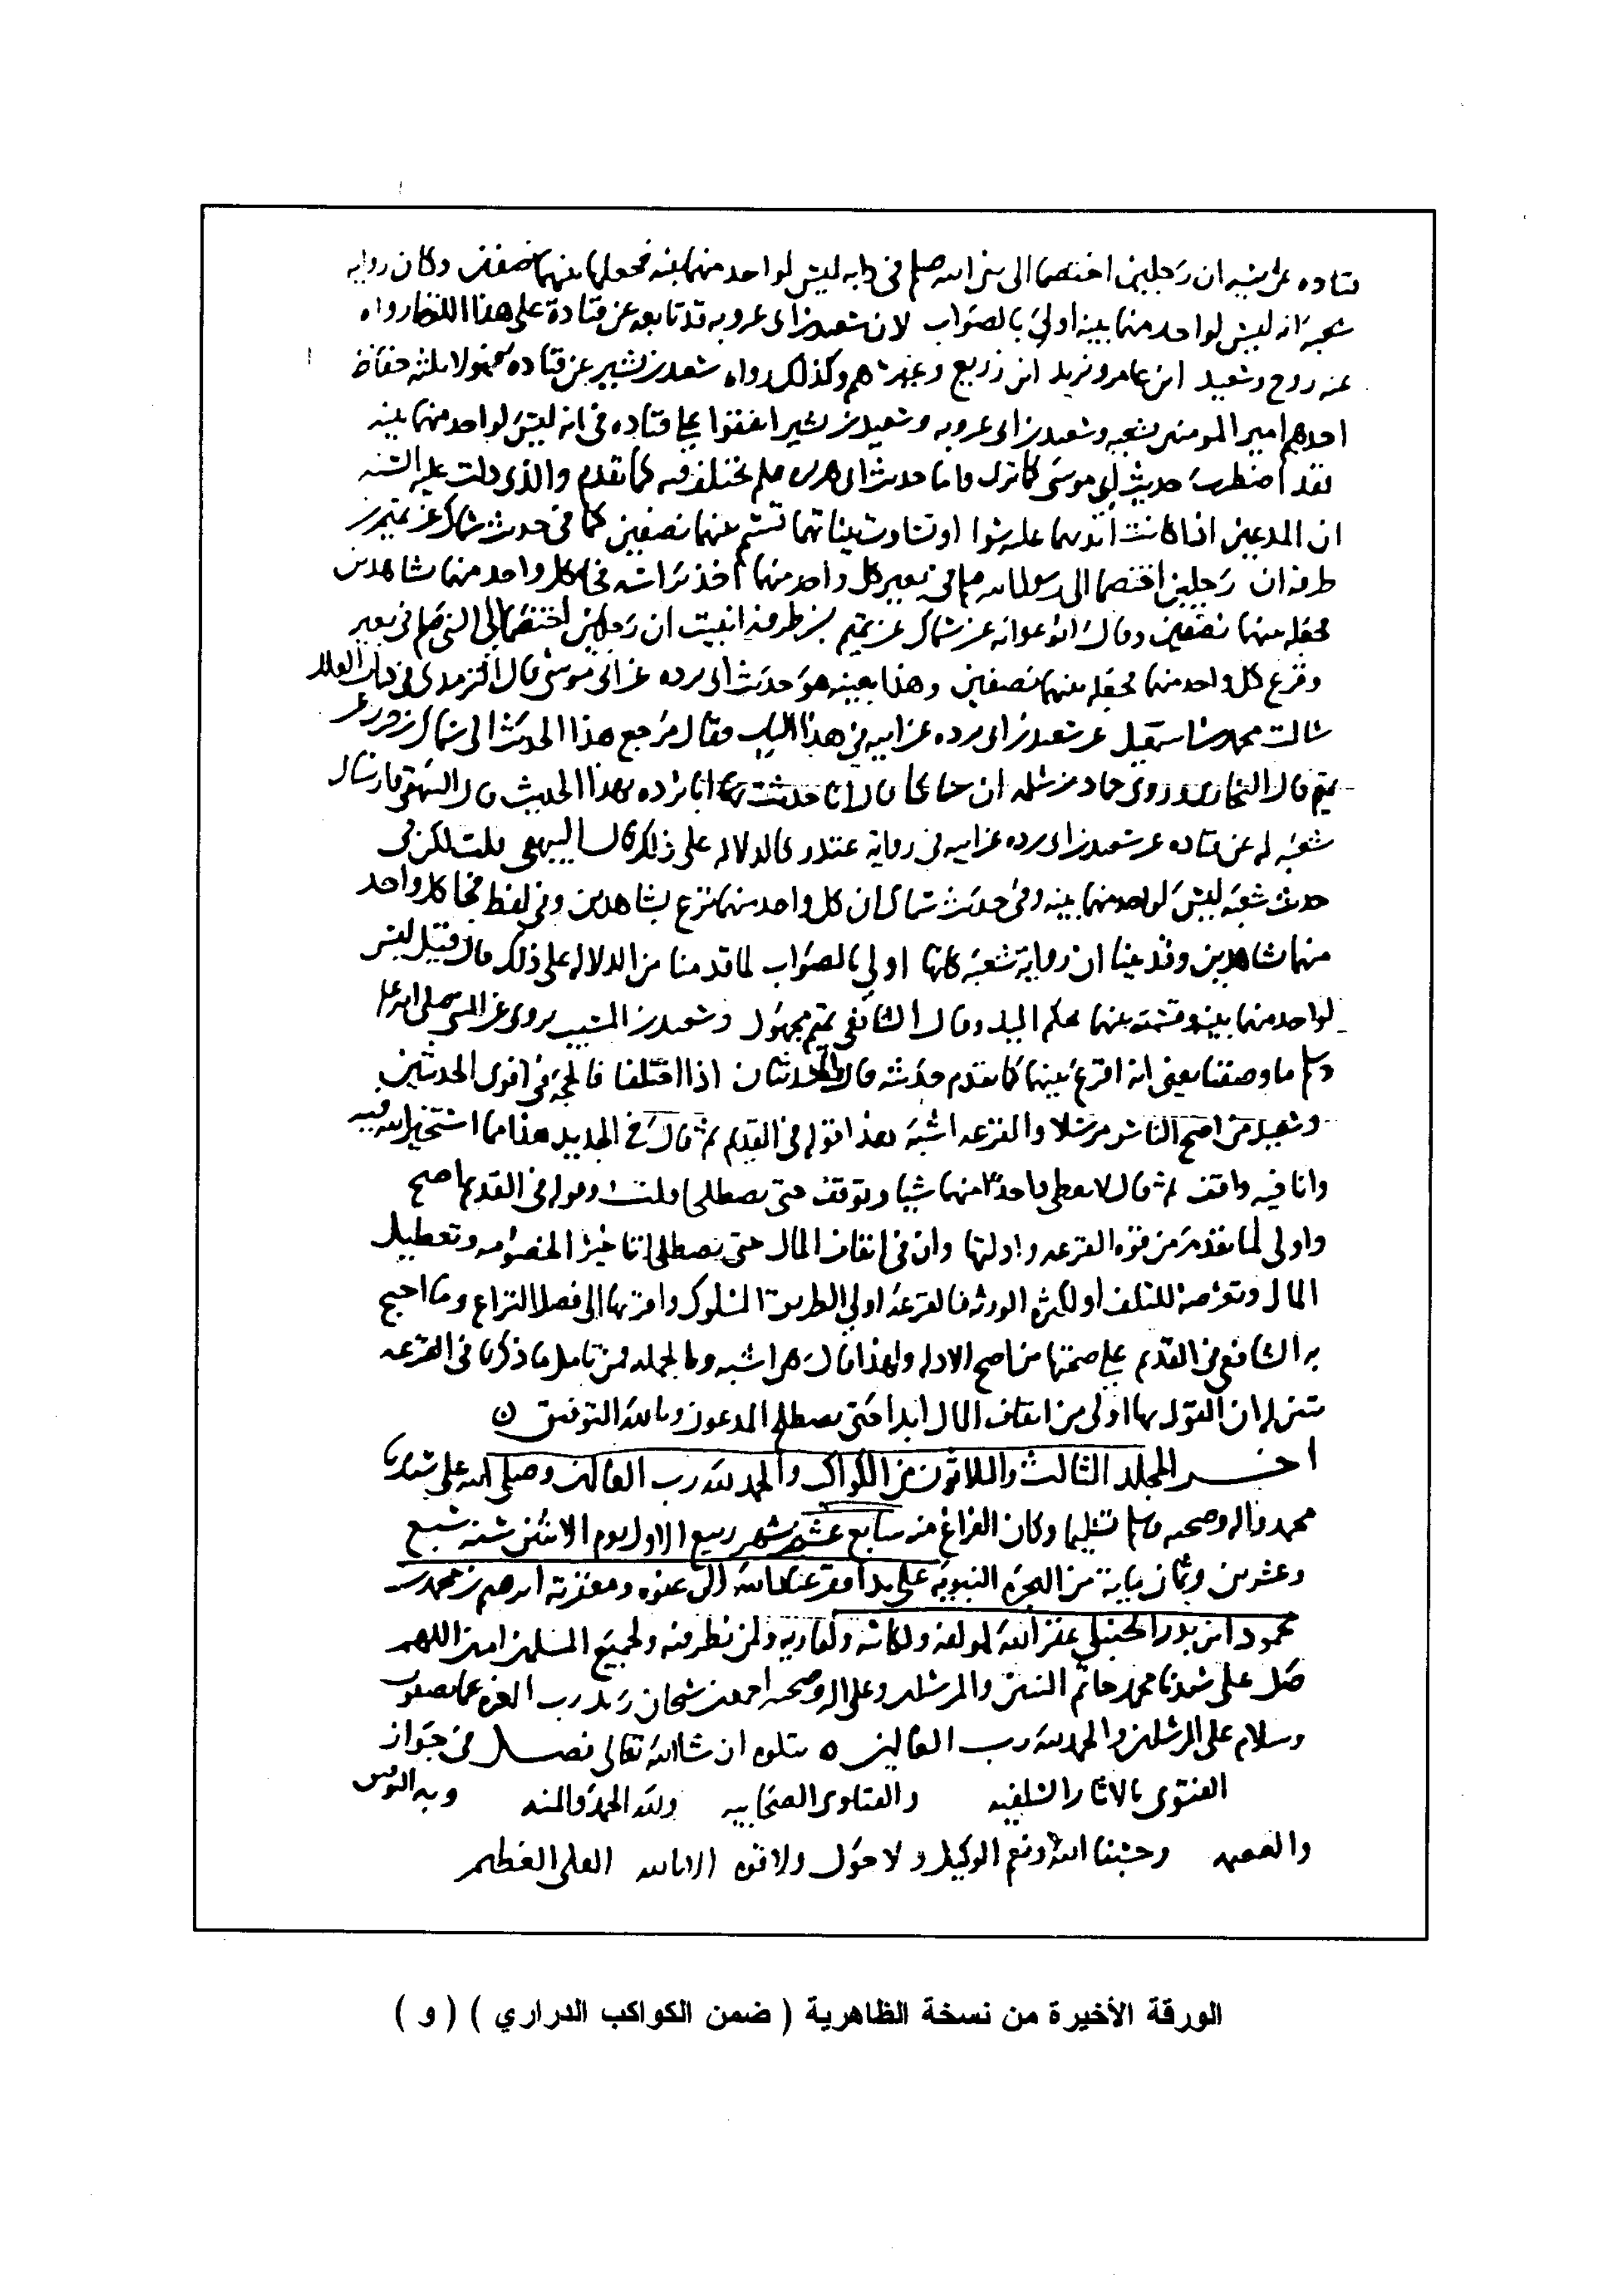 قتاده عن ابيه ان رجلين اختصما الى نبى الله صلم فى دابه ليس لواحد منهما بينه فجعلها بينهما نصفين وكان روايه
شعبه انه ليس لواحد منهما بينه اولى بالصواب لان سعيد بن ابى عروبه قد تابعه عن قتادة على هذا اللفظ رواه
عنه روح وسعيد ابن عامر ويزيد ابن زريع وغيرهم وكذلك رواه سعيد بن بشير عن قتاده فهولا ثلثه حفاظ
احدهم امير المومنين شعبه وسعيد بن ابى عروبه وسعيد بن بشير اتفقوا على قتاده فى انه ليس لواحد منهما بينه
فقد اضطرب حديث ابى موسى كما ترى واما حديث ابى هريره فلم يختلف فيه كما تقدم والذى دلت عليه السنه
ان المدعيين اذا كانت ايديهما عليه سوا او تساوت بيناتهما قسم بينهما نصفين كما فى حديث سماك عن تميم بن
طرفه ان رجلين اختصما الى رسول الله صلم فى بعير كل واحد منهما اخذ براسه فجا كل واحد منهما شاهدين
فجعله بينهما نصفين وقال ابو عوانه عن سماك عن تميم بن طرفه انبيت ان رجلين اختصما الى النبى صلم فى بعير
ونزع كل واحد منهما فجعله بينهما نصفين وهذا بعينه هو حديث ابى برده عن ابى موسى قال الترمذى فى كتاب العلل
سالت محمد بن اسمعيل عن سعيد بن ابى برده عن ابيه فى هذا الباب فقال مرجع هذا الحديث الى سماك بن حرب عن
تميم قال البخارى وروى حماد بن سلمه ان سماكا قال انا حدثت ابا برده بهذا الحديث قال البيهقى وارسال
شعبه له عن قتاده عن سعيد بن ابى برده عن ابيه فى رواية غندر كالدلاله على ذلك قال البيهقى قلت لكن فى
حديث شعبه ليس لواحد منهما بينه وفى حديث سماك ان كل واحد منهما نزع بشاهدين وفى لفظ فجا كل واحد
منهما شاهدين وقد بينا ان رواية شعبه كانها اولى بالصواب لما قدمنا من الدلاله على ذلك فان قيل ليس
لواحد منهما بينه وقسمته بينهما بحكم اليد وقال الشافعى تميم مجهول وسعيد بن المسيب يروى عن النبى صلى الله عليه
وسلم ما وصفنا يعنى انه اقرع بينهما كما تقدم حديثه قال والحديثان اذا اختلفا فالحجه فى اقوى الحديثين
وسعيد من اصح الناس مرسلا والقرعه اشبه هذا قوله فى القديم ثم قال فى الجديد هذا مما استخير الله فيه
وانا فيه واقف ثم قال لا يعطى واحد منهما شيا ويوقف حتى يصطلحا قلت وقوله فى القديم اصح
واولى لما تقدم من قوه القرعه وادلتها وان فى ايقاف المال حتى يصطلحا تاخير الخصومه وتعطيل
المال وتعرضه للتلف او لكثرة الورثه فالقرعه اولى الطريق المسلوك واقربها الى فصل النزاع وما احتج
به الشافعى فى القديم على صحتها من اصح الادله ولهذا قال هى اشبه وبالجمله فمن تامل ما ذكرنا فى القرعه
تبين له ان القول بها اولى من ايقاف المال ابدا حتى يصطلح المدعون وبالله التوفيق ن
اخر المجلد الثالث والثلاثون من الكواكب والحمد لله رب العالمين وصلى الله على سيدنا
محمد واله وصحبه وسلم تسليما وكان الفراغ منه سابع عشر شهر ربيع الاول يوم الاثنين سنه سبع
وعشرين وثمان ماية من الهجره النبويه على يد افقر عباد الله الى عفوه ومغفرته ابرهيم بن محمد بن
محمود ابن بدر الحنبلى غفر الله لمولفه ولكاتبه ولقاريه ولمن نظر فيه ولجميع المسلمين امين اللهم
صل على سيدنا محمد خاتم النبيين والمرسلين وعلى اله وصحبه اجمعين سبحان ربك رب العزه عما يصفون
وسلام على المرسلين والحمد لله رب العالمين ٥ يتلوه ان شا الله تعالى فصل فى جواز
الفتوى بالاثار السلفيه والفتاوى الصحابيه ولله الحمد والمنه وبه التوفيق
والعصمه وحسبنا الله ونعم الوكيل ولا حول ولا قوه الا بالله العلى العظيم
الورقة الأخيرة من نسخة الظاهرية ( ضمن الكواكب الدراري ) ( و )